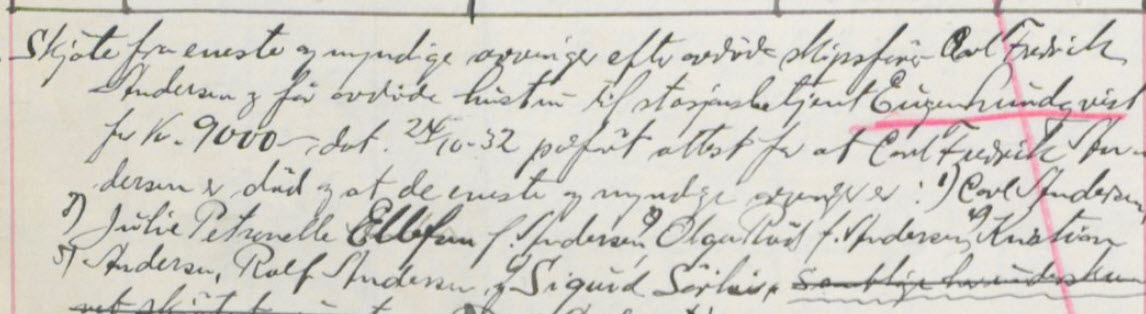 Skjøte fra eneste og myndige arvinger efter avdøde skipsfører Carl Fredrik
Andersen og før avdøde hustru til stasjonsbetjent Eugen Lundqvist
for kr. 9000–, dat. 24/10-32 påført attest for at Carl Fredrik An-
dersen er død og at de eneste og myndige arvinger er: 1) Carl Andersen
2) Julie Petronelle Ellefsen f. Andersen, 3) Olga f. Andersen, 4) Kristian
5) Andersen, Rolf Andersen, og 6) Sigurd